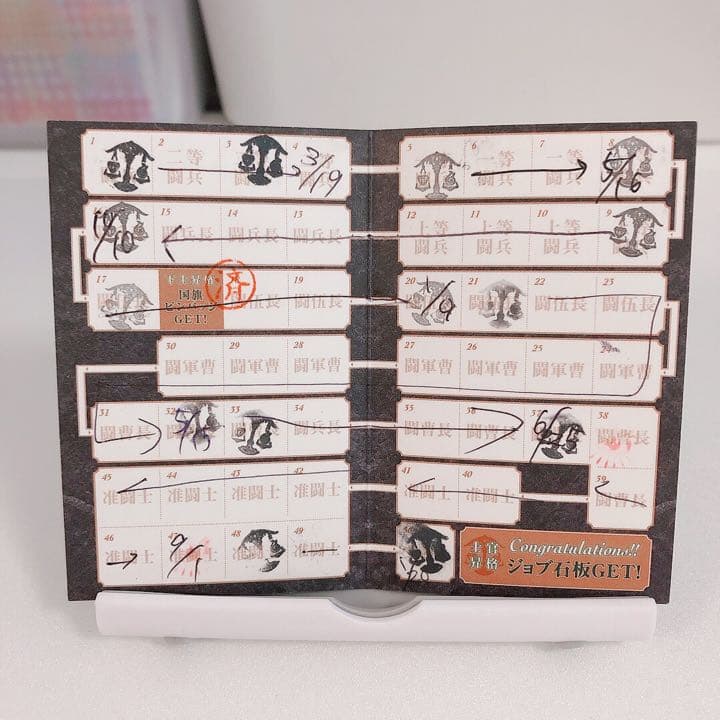 1 2 3 4
二等
闘兵
3/19
5 6 7 8
一等 一等
闘兵 闘兵
5/16
15 14 13
闘兵長 闘兵長 闘兵長
12 11 10 9
上等 上等 上等
闘兵 闘兵 闘兵
17 19
国旗
GET!
済
闘伍長
20 21 22 23
闘伍長 闘伍長
30 29 28
闘軍曹 闘軍曹 闘軍曹
27 26 25 24
闘軍曹 闘軍曹 闘軍曹 闘軍曹
31 32 33 34
闘曹長
35 36 37 38
闘曹長 闘曹長 闘曹長
45 44 43 42
准闘士 准闘士 准闘士 准闘士
41 40 39
准闘士 准闘士 闘曹長
46 47 48 49
准闘士 准闘士 准闘士
9/1
士官
昇格
Congratulations!!
ジョブ石板GET!